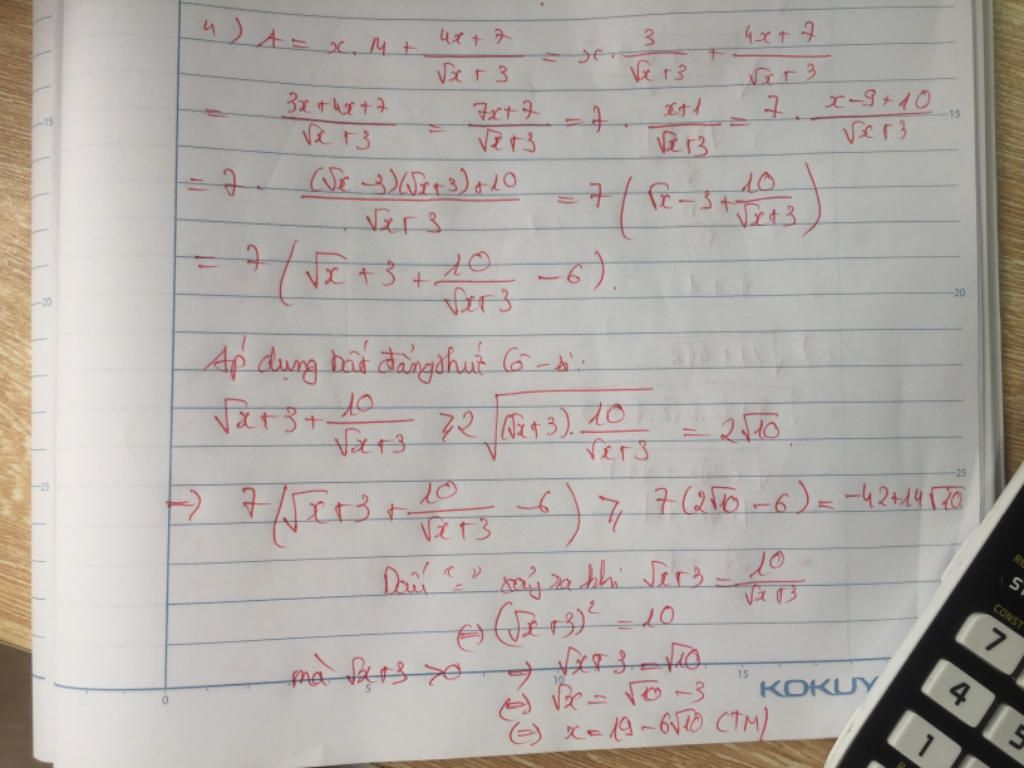 4) A = x . M + \frac{4x+7}{\sqrt{x}+3} = x . \frac{3}{\sqrt{x}+3} + \frac{4x+7}{\sqrt{x}+3}
= \frac{3x+4x+7}{\sqrt{x}+3} = \frac{7x+7}{\sqrt{x}+3} = 7 . \frac{x+1}{\sqrt{x}+3} = 7 . \frac{x-9+10}{\sqrt{x}+3}
= 7 . \frac{(\sqrt{x}-3)(\sqrt{x}+3)+10}{\sqrt{x}+3} = 7 (\sqrt{x}-3+\frac{10}{\sqrt{x}+3})
= 7 (\sqrt{x}+3+\frac{10}{\sqrt{x}+3} - 6).
Áp dụng bất đẳng thức Cô-si:
\sqrt{x}+3+\frac{10}{\sqrt{x}+3} ⩾ 2\sqrt{(\sqrt{x}+3).\frac{10}{\sqrt{x}+3}} = 2\sqrt{10}.
→ 7 (\sqrt{x}+3+\frac{10}{\sqrt{x}+3} - 6) ⩾ 7(2\sqrt{10} - 6) = -42+14\sqrt{10}
Dấu "=" xảy ra khi \sqrt{x}+3 = \frac{10}{\sqrt{x}+3}
⇔ (\sqrt{x}+3)^2 = 10
mà \sqrt{x}+3 > 0 → \sqrt{x}+3 = \sqrt{10}
⇔ \sqrt{x} = \sqrt{10} - 3
⇔ x = 19 - 6\sqrt{10} (TM)
KOKUY
15
20
25
15
20
25
0
5
10
15
ST
CONST
7
4
5
1